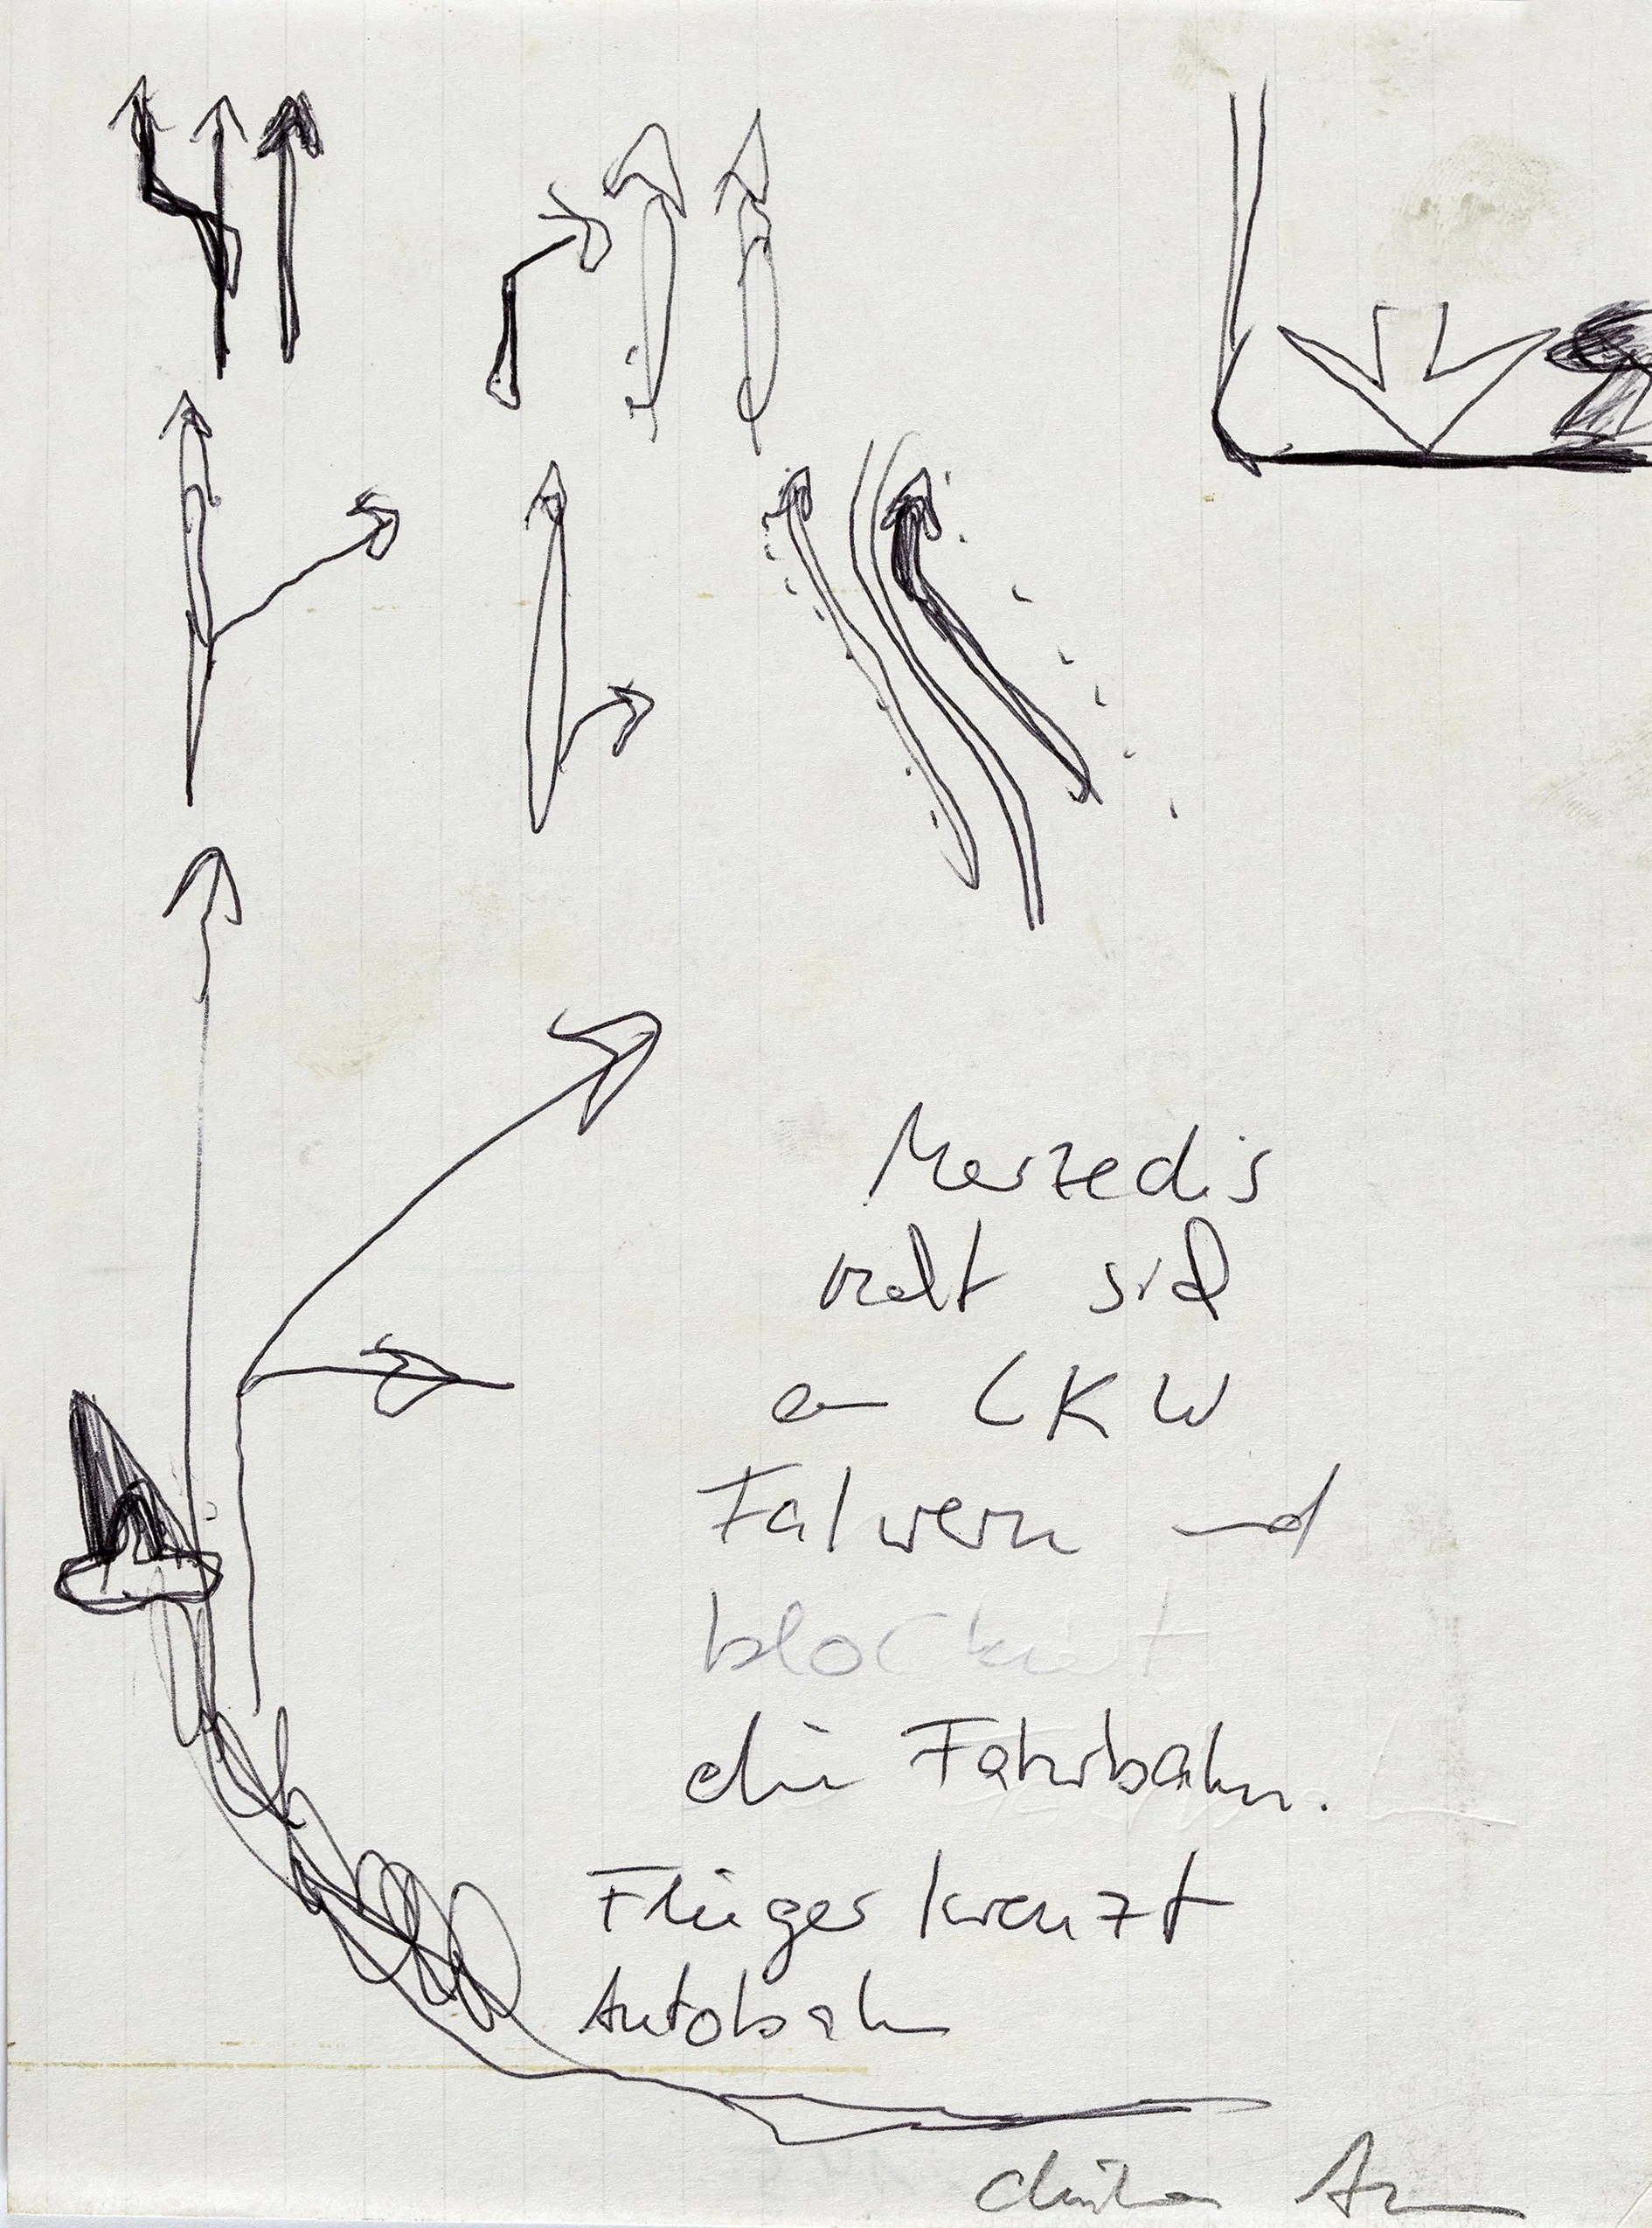 Merzedis
 sich
an LKW
Fahrern und
blockiert
die Fahrbahn.
Flieger kreuzt
Autobahn